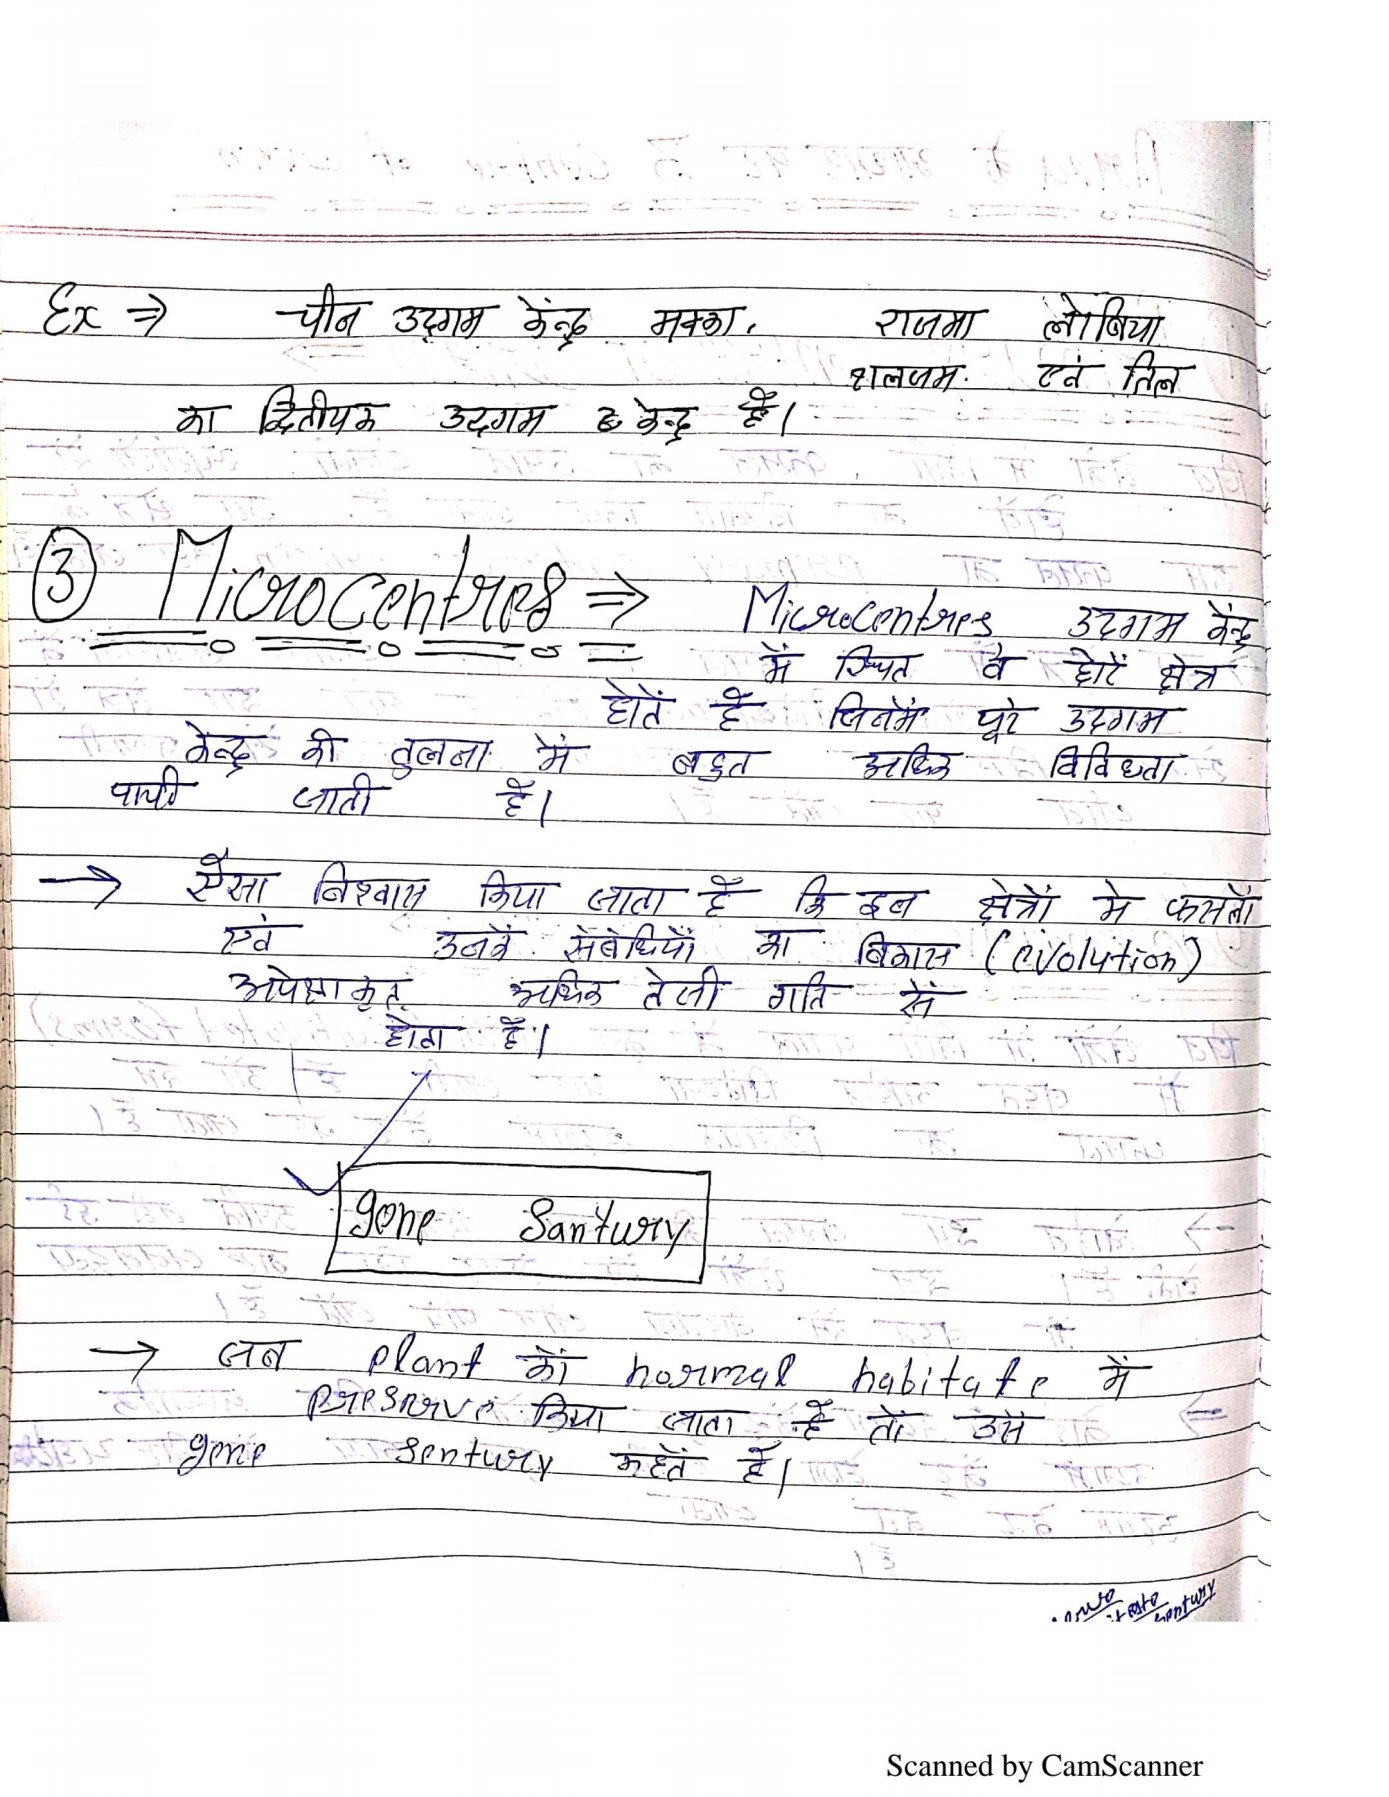 Ex ⇒ चीन उद्गम केंन्द्र मक्का, राजमा लोबिया
शलजम एवं तिल
का द्वितीयक उदगम केन्द्र हैं।
③ Microcentres ⇒ Microcentres उदगम केंन्द्र
में स्थित वे छोटें क्षेत्र
होतें हैं जिनमें पूरे उदगम
केन्द्र की तुलना में बहुत अधिक विविधता
पायी जाती हैं।
→ ऐसा विश्वास किया जाता हैं कि इन क्षेत्रों मे फसलों
एवं उनकें संबंधियों का विकास (evolution)
अपेक्षाकृत अधिक तेजी गति सें
होता हैं।
gene Santury
→ जब plant कों normal habitate में
preserve किया जाता हैं तों उसें
gene Sentury कहतें हैं।
Sentury
Scanned by CamScanner